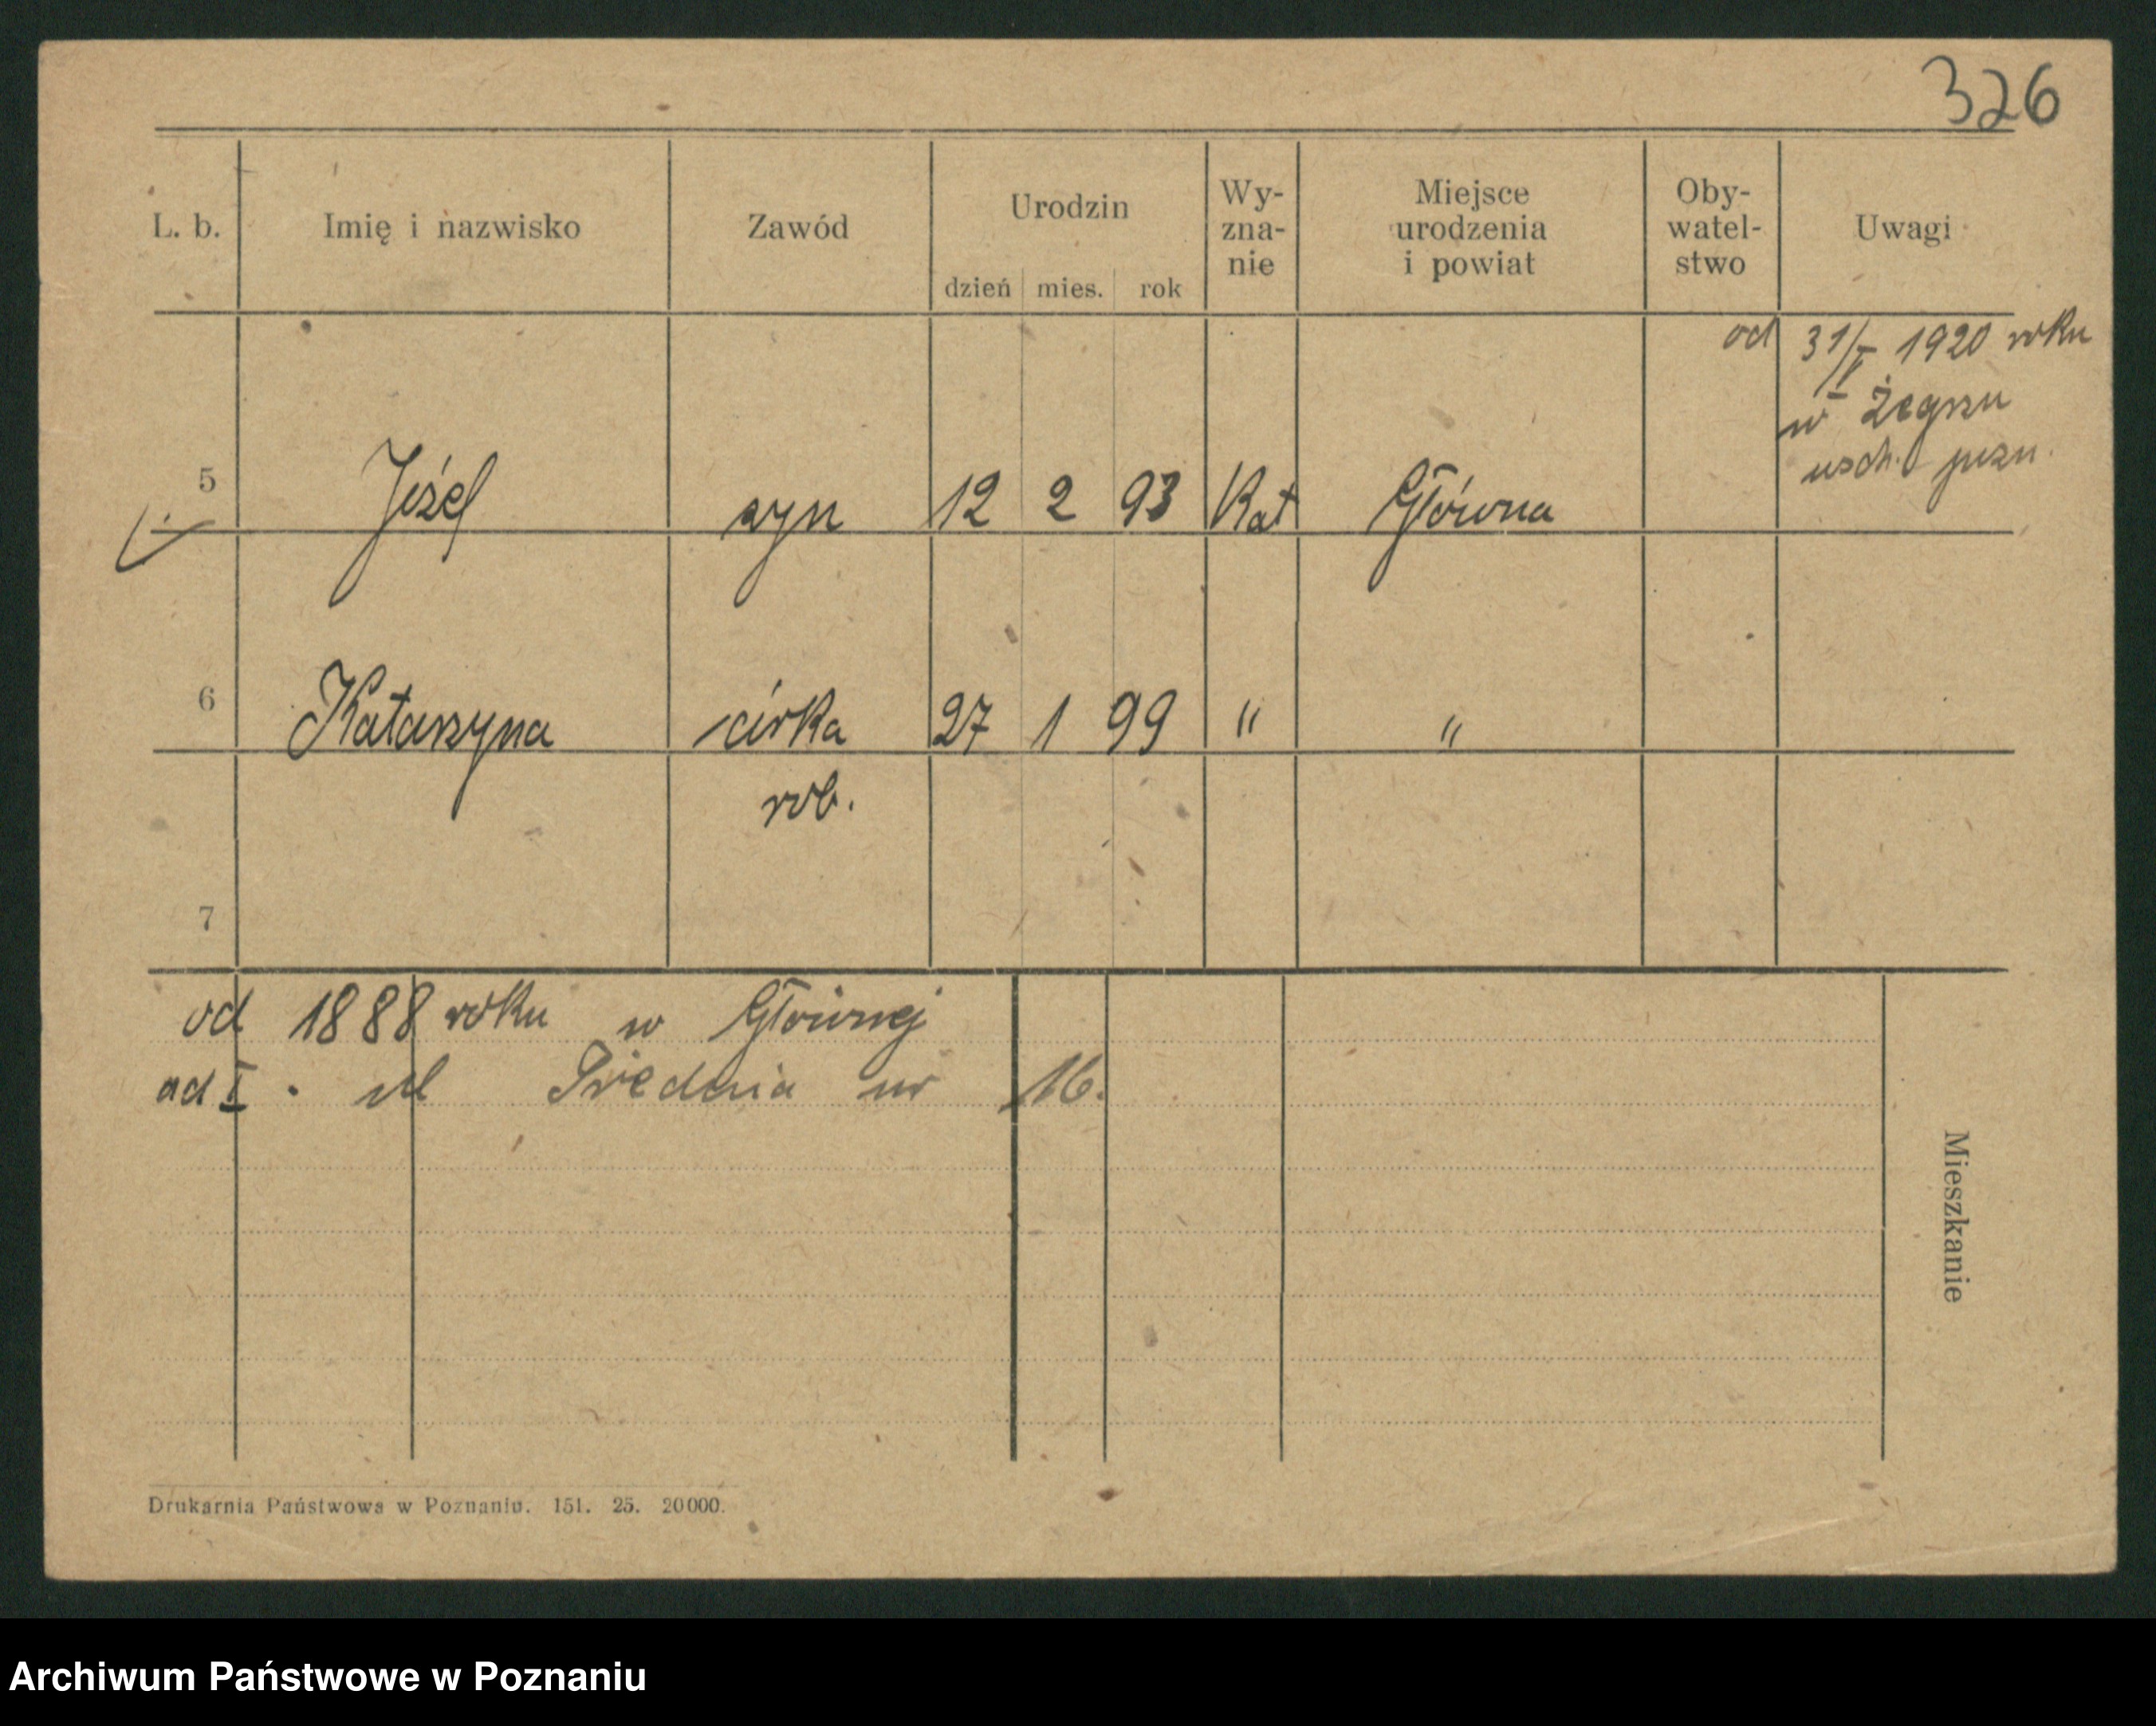 326
L. b.
Imię i nazwisko
Zawód
Urodzin
dzień mies. rok
Wy-
zna-
nie
Miejsce
urodzenia
i powiat
Oby-
watel-
stwo
Uwagi
od 31/V 1920 roku
w Żegrzu
wsch. pozn.
5 Józef syn 12 2 93 Kat Główna
6 Katarzyna córka 27 1 99 " "
rob.
7
od 1888 roku w Głównej
ad I. ul Średnia nr 16.
Mieszkanie
Drukarnia Państwowa w Poznaniu. 151. 25. 20000.
Archiwum Państwowe w Poznaniu